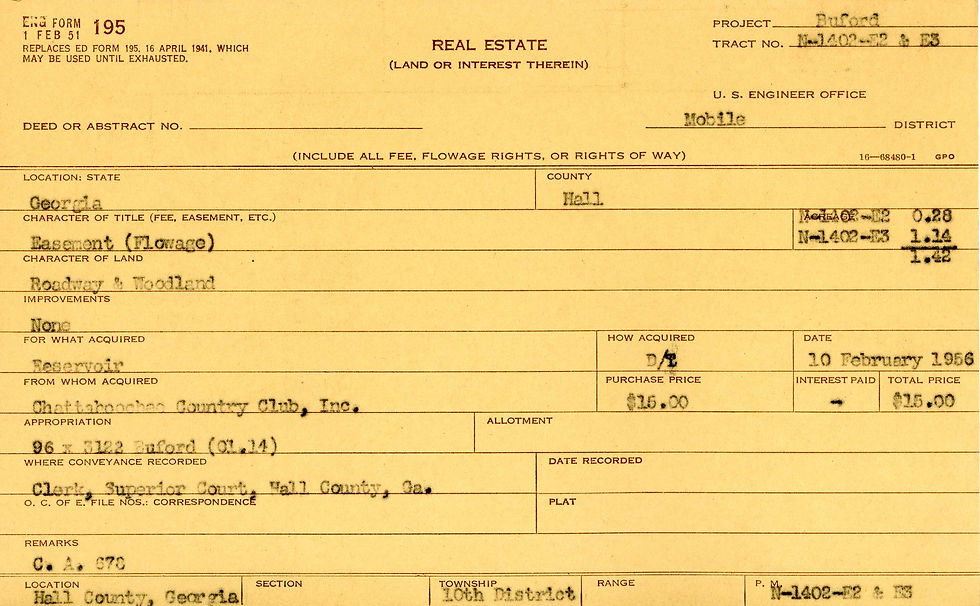 ENG FORM 195
1 FEB 51
REPLACES ED FORM 195, 16 APRIL 1941, WHICH
MAY BE USED UNTIL EXHAUSTED.
REAL ESTATE
(LAND OR INTEREST THEREIN)
PROJECT Buford
TRACT NO. N-1402-E2 & E3
U. S. ENGINEER OFFICE
DEED OR ABSTRACT NO.
Mobile DISTRICT
(INCLUDE ALL FEE, FLOWAGE RIGHTS, OR RIGHTS OF WAY)
16—68480-1 GPO
LOCATION: STATE
Georgia
COUNTY
Hall
CHARACTER OF TITLE (FEE, EASEMENT, ETC.)
Easement (Flowage)
N-1402-E2 0.28
N-1402-E3 1.14
1.42
CHARACTER OF LAND
Roadway & Woodland
IMPROVEMENTS
None
FOR WHAT ACQUIRED
Reservoir
HOW ACQUIRED
D/T
DATE
10 February 1956
FROM WHOM ACQUIRED
Chattahoochee Country Club, Inc.
PURCHASE PRICE
$15.00
INTEREST PAID
-
TOTAL PRICE
$15.00
APPROPRIATION
96 x 3122 Buford (01.14)
ALLOTMENT
WHERE CONVEYANCE RECORDED
Clerk, Superior Court, Hall County, Ga.
DATE RECORDED
O. C. OF E. FILE NOS.: CORRESPONDENCE
PLAT
REMARKS
C. A.
LOCATION
Hall County, Georgia
SECTION
TOWNSHIP
10th District
RANGE
P. M.
N-1402-E2 & E3